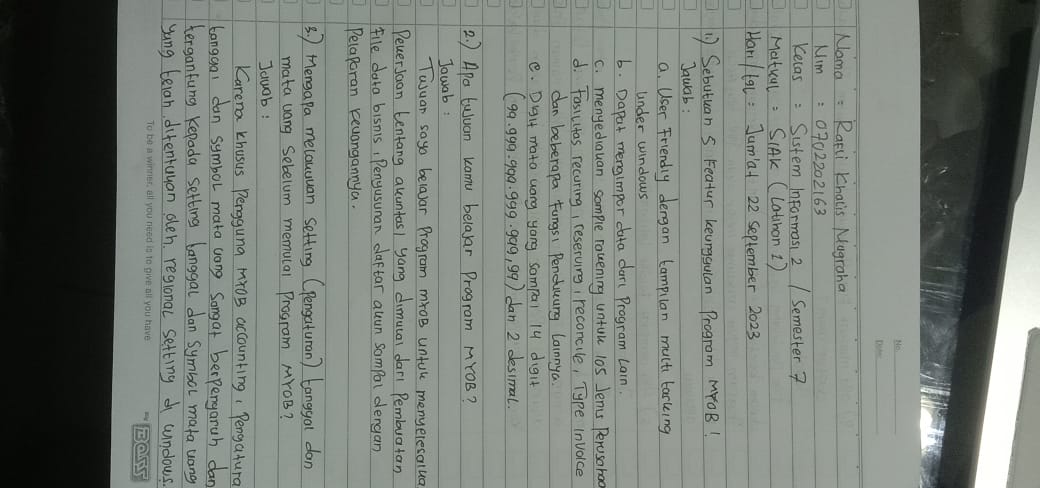 No.
Date:
Nama : Rafli Khalis Nugraha
Nim : 0702202163
Kelas : Sistem Informasi 2 / Semester 7
Matkul : SIAK (Latihan 1)
Hari/tgl : Jum'at 22 September 2023
1.) Sebutkan 5 Featur keunggulan Program MYOB!
Jawab :
a. User Friendly dengan tampilan multi tasking
under windows
b. Dapat mengimpor data dari Program Lain.
c. menyediakan sample rekening untuk 105 Jenis Perusahaa
d. Fasilitas recuring, reserving, reconcile, Type Invoice
dan beberapa Fungsi Pendukung Lainnya.
e. Digit mata uang yang sampai 14 digit
(99.999.999.999.999,99) dan 2 desimal.
2.) Apa tujuan kamu belajar Program MYOB?
Jawab :
Tujuan saya belajar Program MYOB untuk menyelesaika
Pekerjaan tentang akuntasi yang dimulai dari Pembuatan
file data bisnis, Penyusunan daftar akun sampai dengan
Pelaporan keuangannya.
3.) Mengapa melakukan Setting (Pengaturan) tanggal dan
mata uang Sebelum memulai Program MYOB?
Jawab :
Karena khusus Pengguna MYOB accounting, Pengatura
tanggal dan symbol mata uang Sangat berpengaruh dan
tergantung kepada setting tanggal dan Symbol mata uang
yang telah ditentukan oleh regional Setting di windows.
To be a winner, all you need is to give all you have
BOSS